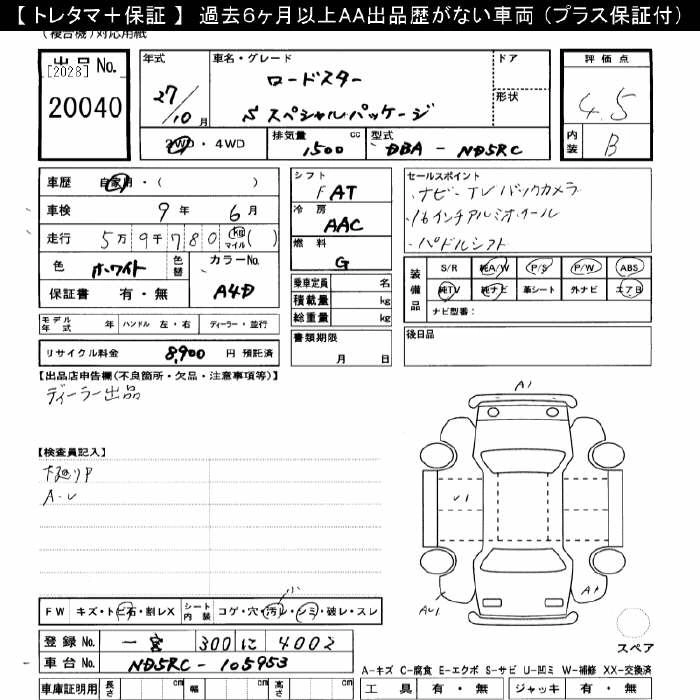 【 トレタマ＋保証 】 過去6ヶ月以上AA出品歴がない車両 （プラス保証付）
（複合機）対応用紙
出品 No.
[2028]
20040
年式
27/10月
車名・グレード
ロードスター
S スペシャルパッケージ
ドア
形状
評価点
4.5
内装 B
2WD ・ 4WD
排気量 1500 cc
型式 DBA - ND5RC
車歴 自家用・（ ）
車検 9年 6月
走行 5万9千780 km マイル （ ）
色 ホワイト 色替
カラーNo. A4D
保証書 有・無
シフト
F AT
冷房
AAC
燃料
G
乗車定員 名
積載量 kg
総重量 kg
書類期限
月 日
セールスポイント
・ナビ-TVバックカメラ
・16インチアルミホイール
・パドルシフト
装備品
S/R 純A/W P/S P/W ABS
純TV 純ナビ 革シート 外ナビ エアB
ナビ型番：
後日品
モデル年式 年 ハンドル 左・右 ディーラー・並行
リサイクル料金 8,900 円 預託済
【出品店申告欄(不良箇所・欠品・注意事項等)】
ディーラー出品
【検査員記入】
下廻りP
A-U
A1
U1
AU1
A1
スペア
小
FW キズ・トビ石・割レX シート内装 コゲ・穴・汚レ・シミ・破レ・スレ
登録 No. 一宮 300 に 4002
車台 No. ND5RC - 105953
A-キズ C-腐食 E-エクボ S-サビ U-凹ミ W-補修 XX-交換済
車庫証明用 長さ cm 幅 cm 高さ cm
工具 有・無 ジャッキ 有・無